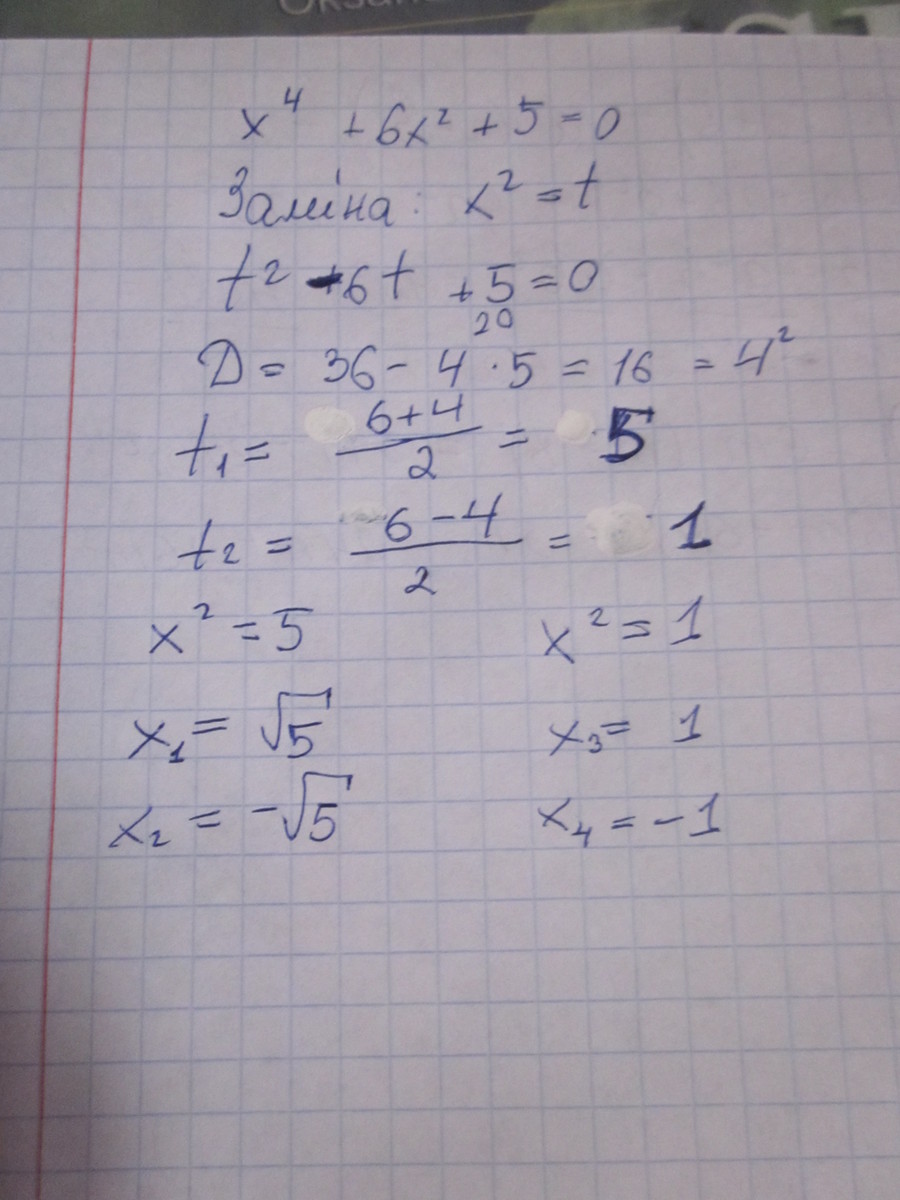 x⁴ + 6x² + 5 = 0
Заміна: x² = t
t² - 6t + 5 = 0
20
D = 36 - 4 · 5 = 16 = 4²
t₁ = (6+4)/2 = 5
t₂ = (6-4)/2 = 1
x² = 5 x² = 1
x₁ = √5 x₃ = 1
x₂ = -√5 x₄ = -1